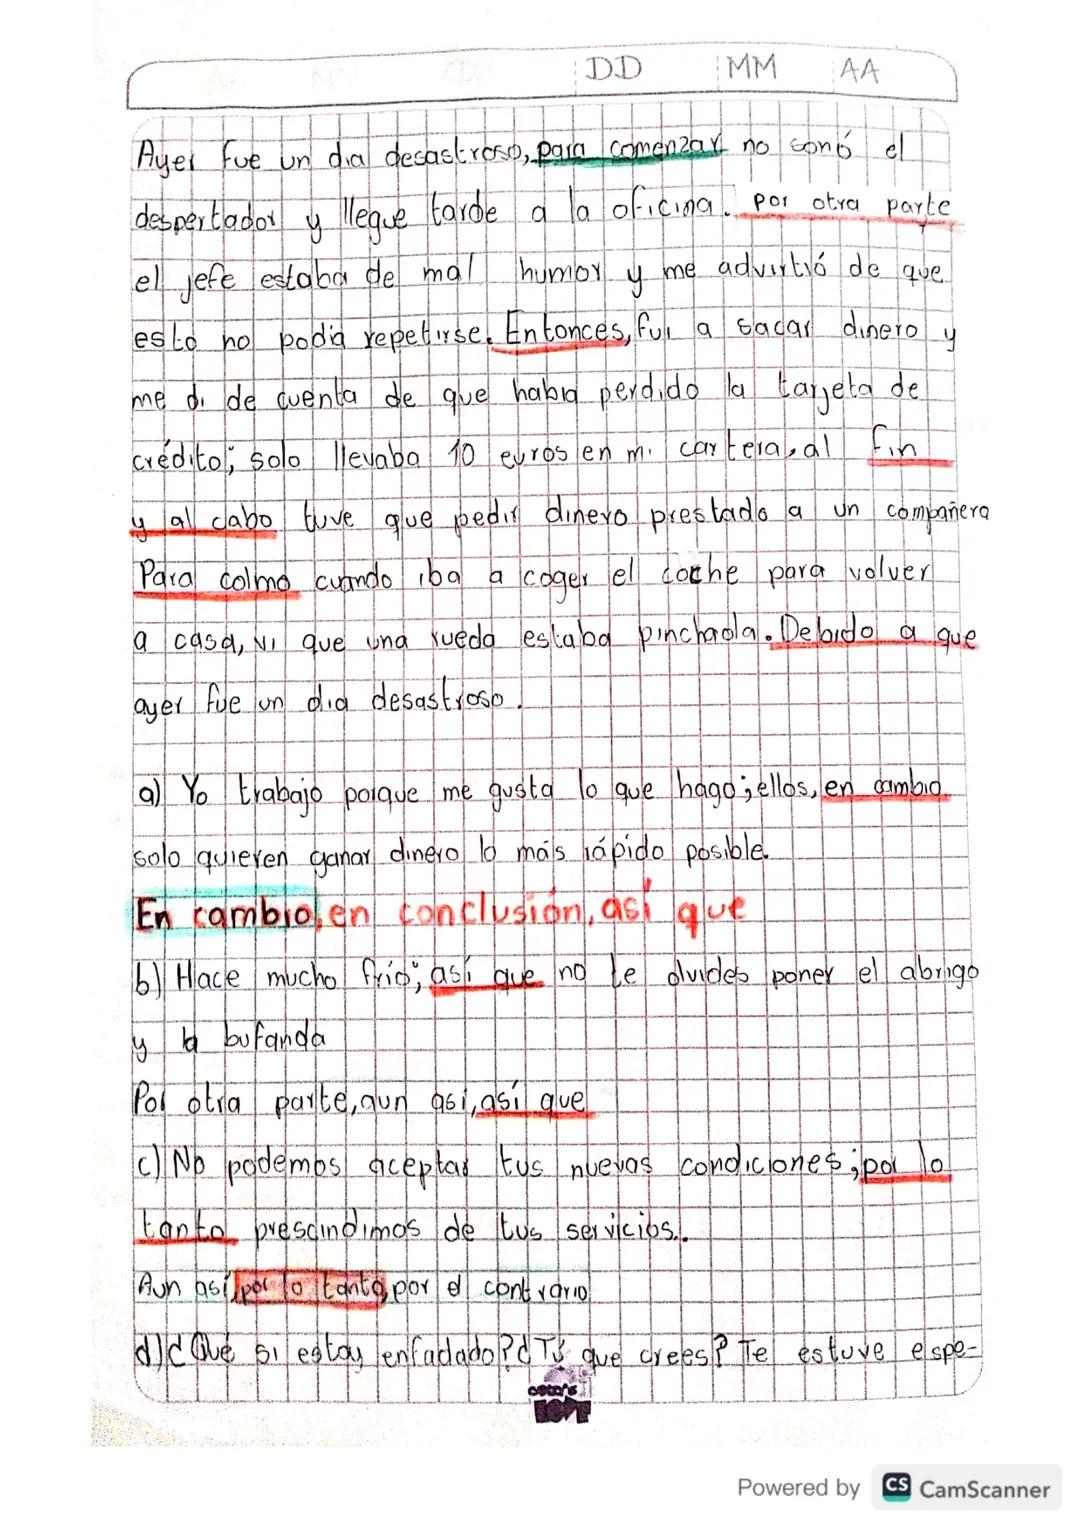 DD MM AA
Ayer fue un dia desastroso, para comenzar no sonó el
despertador y llegue tarde a la oficina. por otra parte
el jefe estaba de mal humor y me advirtió de que
esto no podia repetirse. Entonces, fui a sacar dinero y
me di de cuenta de que habia perdido la tarjeta de
crédito; solo llevaba 10 euros en mi cartera, al fin
y al cabo tuve que pedir dinero prestado a un compañera
Para colmo cuando iba a coger el coche para volver
a casa, vi que una rueda estaba pinchada. Debido a que
ayer fue un dia desastroso.
a) Yo trabajo porque me gusta lo que hago; ellos, en cambio
solo quieren ganar dinero lo más rápido posible.
En cambio, en conclusión, así que
b) Hace mucho frío; así que no te olvides poner el abrigo
y la bufanda
Por otra parte, aun asi, así que
c) No podemos aceptar tus nuevas condiciones; por lo
tanto prescindimos de tus servicios..
Aun así, por lo tanto, por el contrario
d) ¿Qué si estoy enfadado? ¿Tú que crees? Te estuve espe-
LOVE
Powered by CS CamScanner